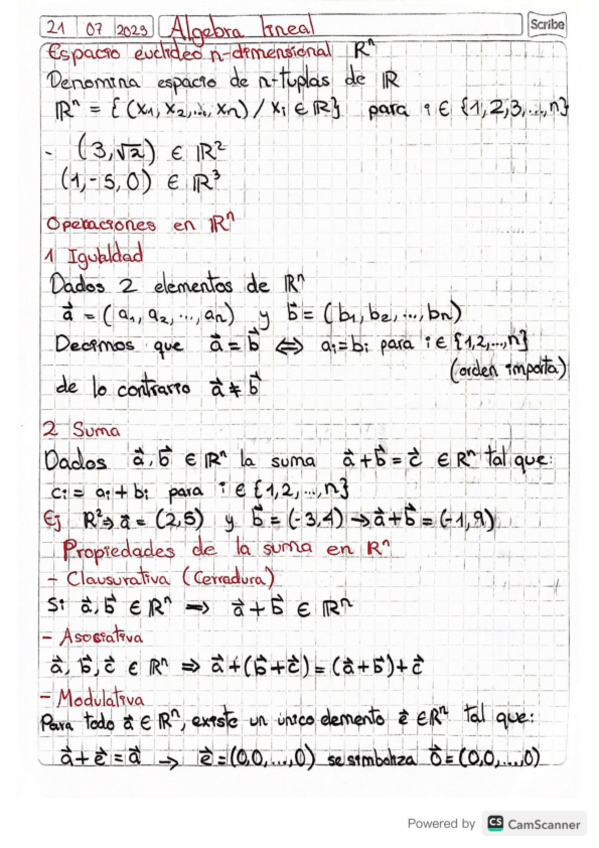 21 07 2023 Algebra lineal Scribe
Espacio euclideo n-dimensional ℝⁿ
Denomina espacio de n-tuplas de ℝ
ℝⁿ = { (x₁, x₂,..., xₙ) / xᵢ ∈ ℝ} para i ∈ {1,2,3,...,n}
- (3,√2) ∈ ℝ²
(1,-5,0) ∈ ℝ³
Operaciones en ℝⁿ
1 Igualdad
Dados 2 elementos de ℝⁿ
a⃗ = (a₁, a₂,..., aₙ) y b⃗ = (b₁, b₂,..., bₙ)
Decimos que a⃗ = b⃗ ⇔ aᵢ=bᵢ para i ∈ {1,2,...,n}
(orden importa)
de lo contrario a⃗ ≠ b⃗
2 Suma
Dados a⃗, b⃗ ∈ ℝⁿ la suma a⃗+b⃗ = c⃗ ∈ ℝⁿ tal que:
cᵢ = aᵢ + bᵢ para i ∈ {1,2,...,n}
Ej R²⇒ a⃗ = (2,5) y b⃗ = (-3,4) → a⃗+b⃗ = (-1,9)
Propiedades de la suma en Rⁿ
- Clausurativa (Cerradura)
Si a⃗, b⃗ ∈ ℝⁿ ⇒ a⃗ + b⃗ ∈ ℝⁿ
- Asociativa
a⃗, b⃗, c⃗ ∈ ℝⁿ ⇒ a⃗+(b⃗+c⃗) = (a⃗+b⃗)+c⃗
- Modulativa
Para todo a⃗ ∈ ℝⁿ, existe un único elemento e⃗ ∈ ℝⁿ tal que:
a⃗ + e⃗ = a⃗ → e⃗ = (0,0,...,0) se simboliza o⃗ = (0,0,...,0)
Powered by CS CamScanner